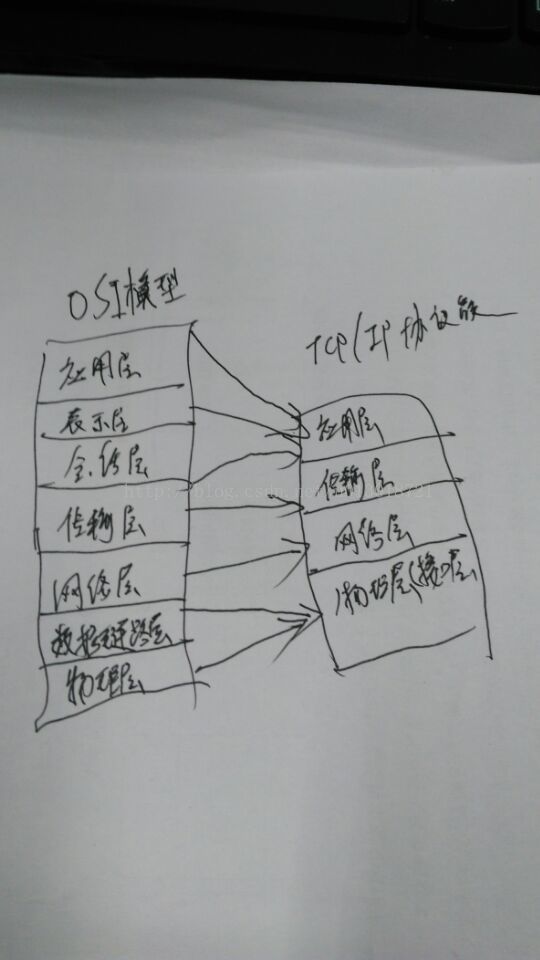 OSI模型
应用层
表示层
会话层
传输层
网络层
数据链路层
物理层
TCP/IP协议族
应用层
传输层
网络层
物理层(接口层
http://blog.csdn.net/